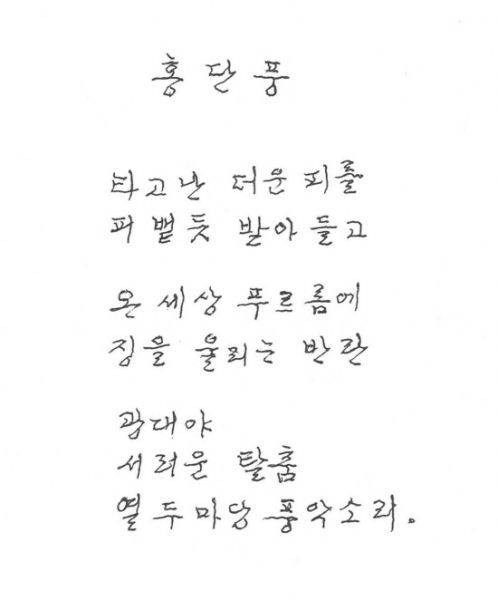 홍단풍
타고난 더운 피를
피 뱉듯 받아들고
온 세상 푸르름에
징을 울리는 반란
광대야
서러운 탈춤
열두마당 풍악소리.